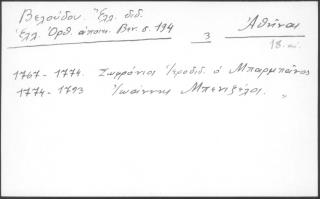 Βελούδου. Ἑλλ. διδ.
ἑλλ. Ὀρθ. ἀποικ. Βεν. σ. 194
3
Ἀθῆναι
18. αἰ.
1767 - 1774. Σωφρόνιος Ἱεροδιδ. ὁ Μπαρμπᾶνος
1774 - 1793 Ἰωάννης Μπενιζέλος. "